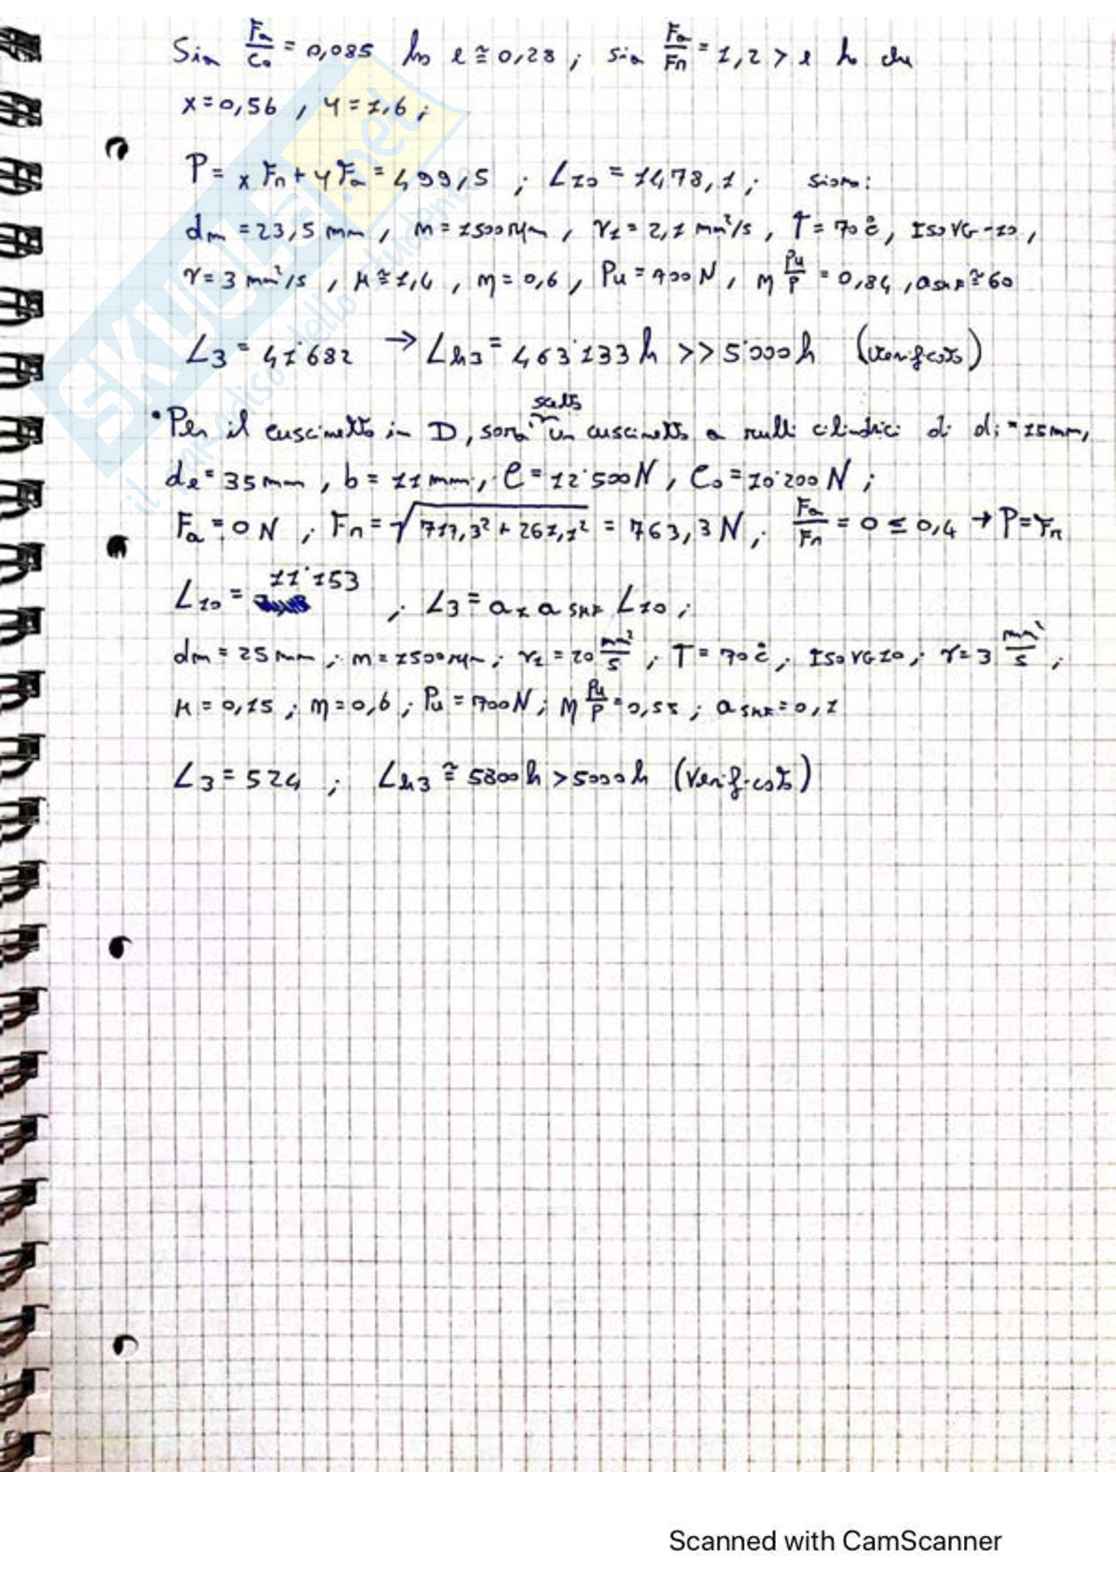 Sia Fa/C₀ = 0,085 ho e ≅ 0,28 ; sia Fa/Fr = 1,2 > e ho che
x = 0,56 , y = 1,6 ;
P = x Fr + y Fa = 499,5 ; L10 = 1478,1 ; siano:
dm = 23,5 mm , n = 1500 rpm , ν1 = 2,1 mm²/s , T = 70°C , ISO VG-10 ,
ν = 3 mm²/s , K ≅ 1,4 , η = 0,6 , Pu = 700 N , η Pu/P = 0,84 , aSKF ≅ 60
L3 = 41'682 → Lh3 = 463'133 h >> 5'000 h (verificato)
• Per il cuscinetto in D, sarà scelto un cuscinetto a rulli cilindrici di di = 15 mm,
de = 35 mm , b = 11 mm , C = 12'500 N , C₀ = 10'200 N ;
Fa = 0 N ; Fr = √717,3² + 261,1² = 763,3 N ; Fa/Fr = 0 ≤ 0,4 → P = Fr
L10 = 11'153 ; L3 = a1 aSKF L10 ;
dm = 25 mm ; n = 1500 rpm ; ν1 = 20 mm²/s ; T = 70°C ; ISO VG 10 ; ν = 3 mm²/s ;
K = 0,15 ; η = 0,6 ; Pu = 700 N ; η Pu/P = 0,55 ; aSKF = 0,1
L3 = 524 ; Lh3 ≅ 5800 h > 5000 h (verificato)
SKUOLA.net
Scanned with CamScanner